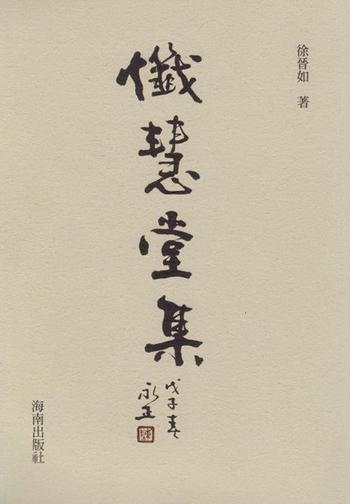 徐晉如 著
懺慧堂集
戊子春
永正
海南出版社